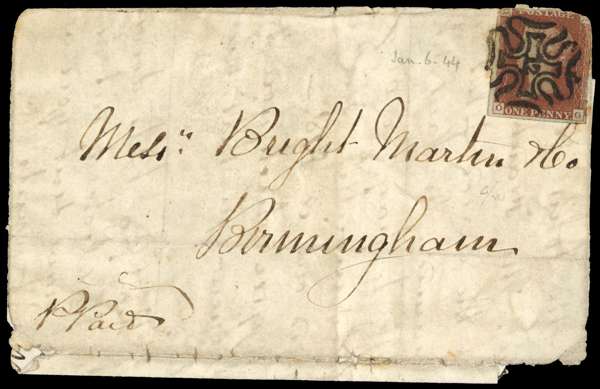 POSTAGE
Jan. 6. 44
O ONE PENNY G
Messrs Bright Martin & Co
Birmingham
P Paid